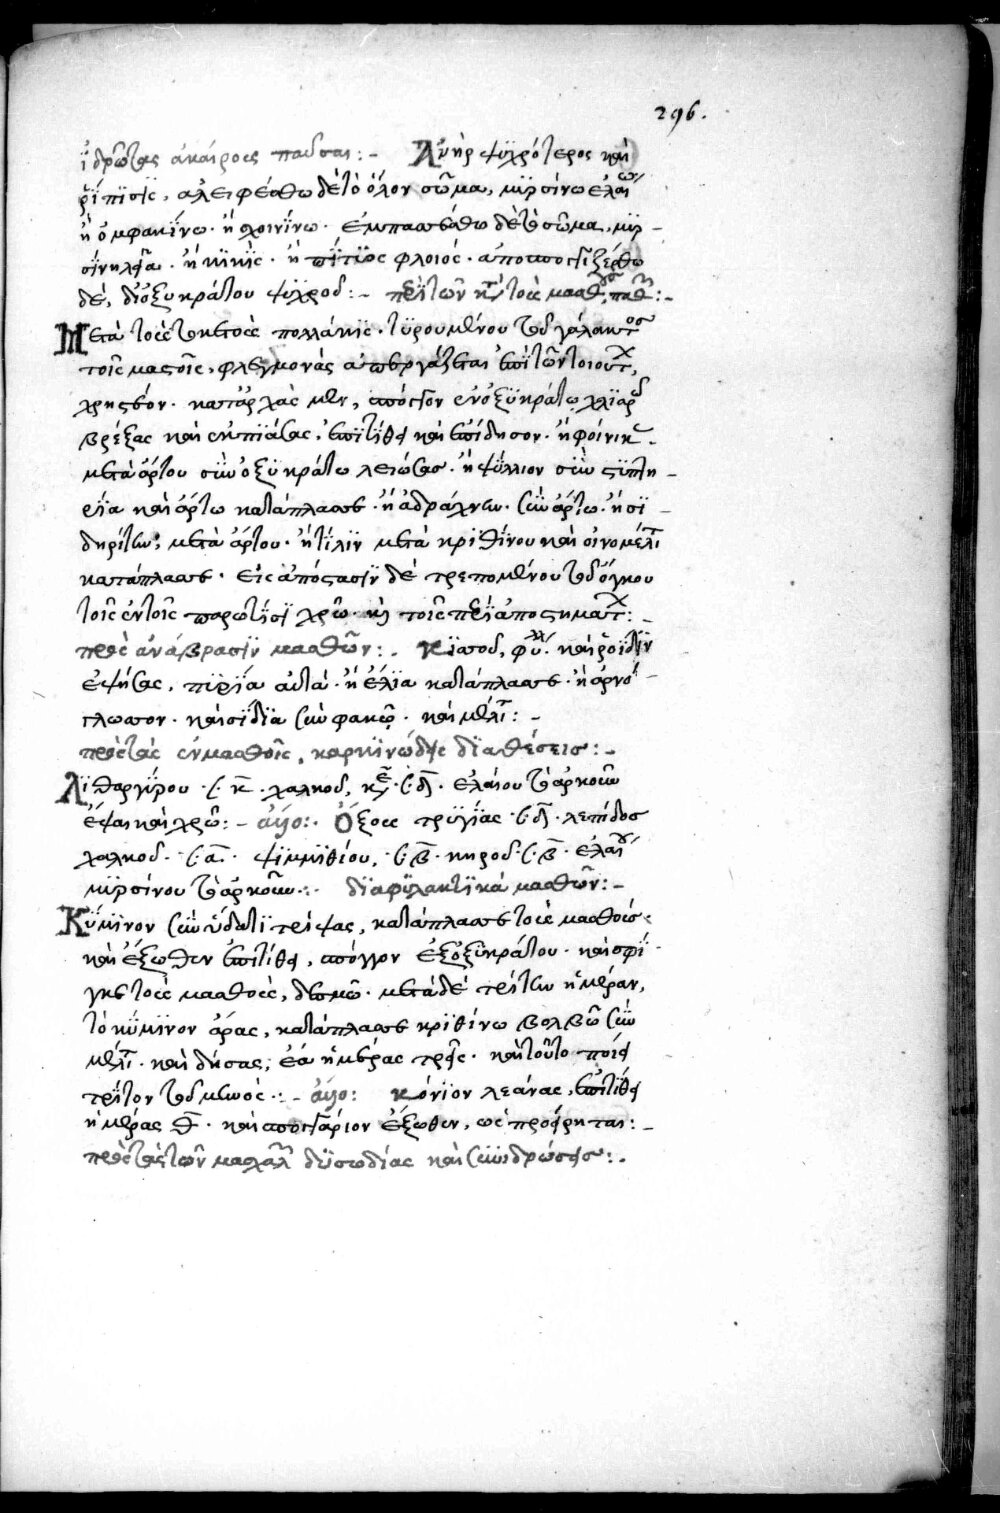 296.
ἱδρῶτας ἀκαίρους παῦσαι :- Ἀνὴρ ψυχρότερος καὶ
ῥίπισις, ἀλειφέσθω δὲ τὸ ὅλον σῶμα, μυρσίνω ἐλαίω
ἢ ὀμφακίνω · ἢ σχοινίνω · ἐμπασσέσθω δὲ τὸ σῶμα, μυρ-
σίνη λεία · ἢ κικὶς · ἢ πίτυος φλοιός · ἀποσπογγιζέσθω
δὲ, δι' ὀξυκράτου ψυχροῦ :- περὶ τῶν κατὰ τοὺς μασθοὺς παθῶν :-
Μετὰ τοὺς τοκετοὺς πολλάκις · τυρουμένου τοῦ γάλακτος
τοῖς μαστοῖς, φλεγμονὰς ἀπεργάζεται ἐπὶ τῶν τοιούτων,
χρηστέον · κατ' ἀρχὰς μὲν, σπόγγον ἐν ὀξυκράτω χλιαρῶ
βρέξας καὶ ἐκπιάσας, ἐπιτίθει καὶ ἐπίδησον · ἢ φοίνικας
μετὰ ἄρτου σὺν ὀξυκράτω λειώσας · ἢ ψύλλιον σὺν στυπτη-
ρία καὶ ἄρτω κατάπλασσε · ἢ ἀδράχνην · σὺν ἄρτω · ἢ σι-
δηρίτην, μετὰ ἄρτου · ἢ τίλιν μετὰ κριθίνου καὶ οἰνομέλιτι
κατάπλασσε · εἰς ἀπόστασιν δὲ τρεπομένου τοῦ ὄγκου
τοῖς ἐν τοῖς παρωτίσι χρῶ · καὶ τοῖς περὶ ἀποστημάτων :-
πρὸς ἀνάβρασιν μασθῶν :- Κισσοῦ, φύλλα · καὶ ῥοΐδιν
ἑψήσας, πυρία αὐτὰ · ἢ ἐλία κατάπλασσε · ἢ ἀρνό-
γλωσσον · καὶ σίδια σὺν φακῶ · καὶ μέλιτι :-
πρὸς τὰς ἐν μασθοῖς, καρκινώδεις διαθέσεις :-
Λιθαργύρου · κ · χαλκοῦ, κεκαυμένου · δ · ἐλαίου τὸ ἀρκοῦν
ἕψαι καὶ χρῶ :- ἄλλο : Ὄξους τρυγίας · δ · λεπίδος
χαλκοῦ · α · ψιμμιθίου, · β · κηροῦ · β · ἐλαίου
μυρσίνου τὸ ἀρκοῦν :· διαφυλακτικὰ μασθῶν :-
Κύμινον σὺν ὕδατι τρίψας, κατάπλασσε τοὺς μασθοὺς
καὶ ἔξωθεν ἐπιτίθει, σπόγγον ἐξ ὀξυκράτου · καὶ σφί-
γγε τοὺς μασθοὺς, δεσμῶ · μετὰ δὲ τρίτην ἡμέραν,
τὸ κύμινον ἄρας, κατάπλασσε κριθίνω βολβῶ σὺν
μέλιτι · καὶ δήσας, ἔα ἡμέρας τρεῖς · καὶ τοῦτο ποίει
τρίτον τοῦ μηνὸς :- ἄλλο : Κόνιον λεάνας, ἐπιτίθει
ἡμέρας · καὶ σπογγάριον ἔξωθεν, ὡς προείρηται :-
πρὸς τὰς τῶν μασχαλῶν δυσωδίας καὶ συνιδρώσεις :-